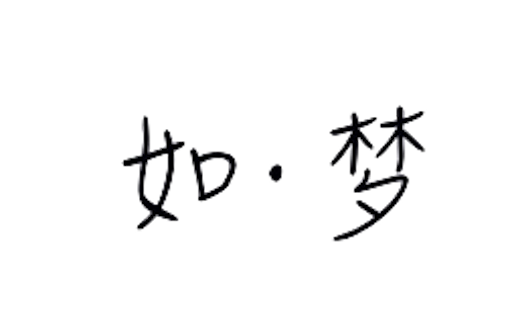 如·梦